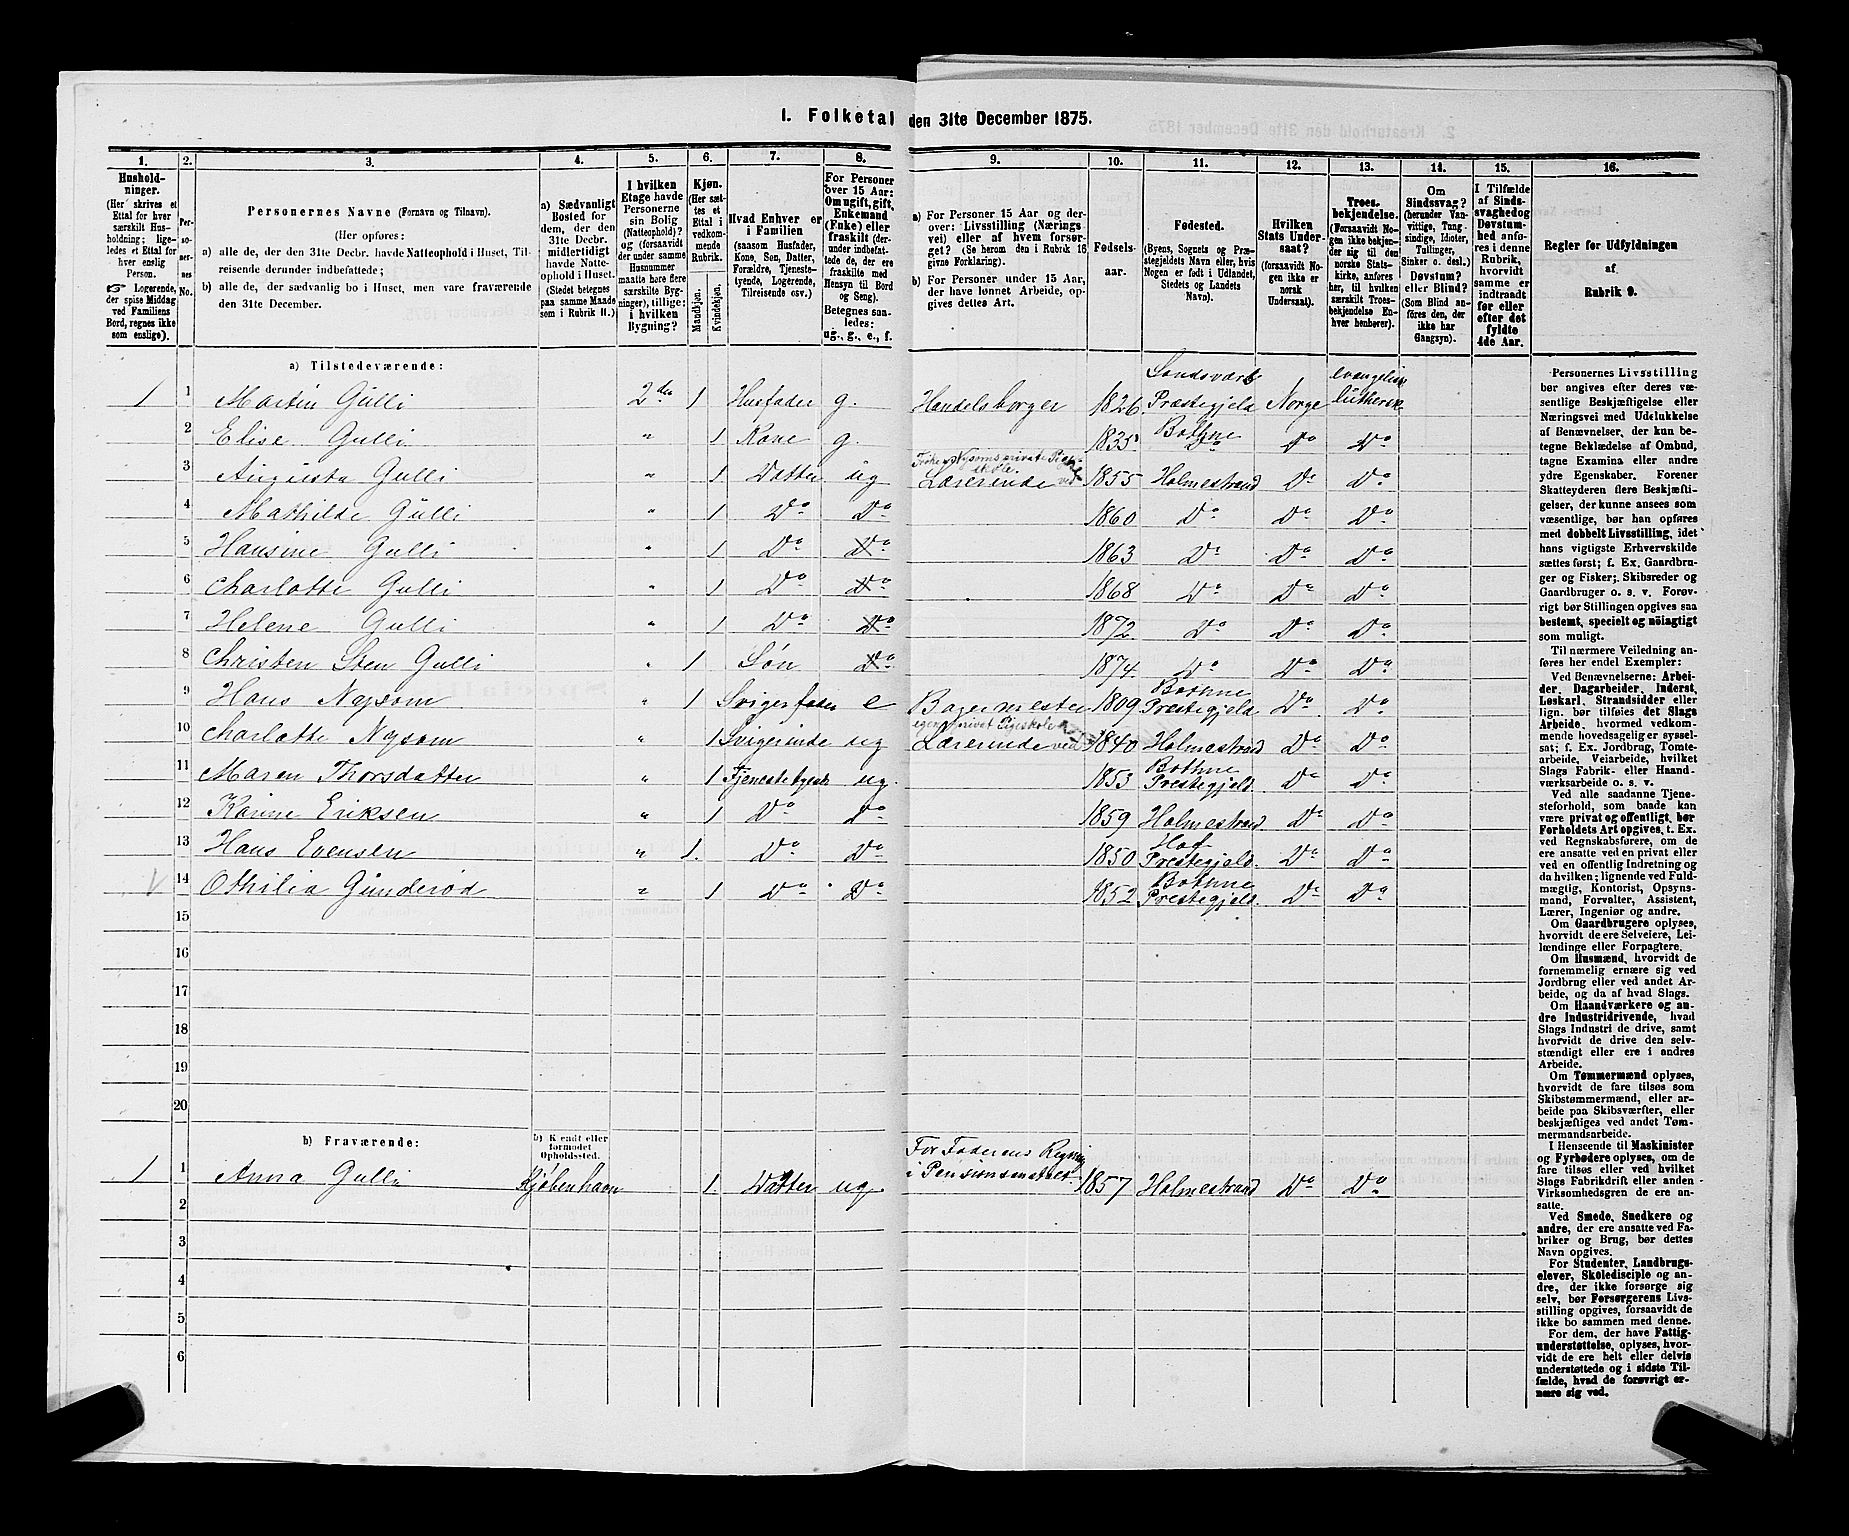 I. Folketal den 31te December 1875.
1. 2. 3. 4. 5. 6. 7. 8. 9. 10. 11. 12. 13. 14. 15. 16.
Husholdninger. (Her skrives et Ettal for hver særskilt Husholdning; ligeledes et Ettal for hver enslig Person. ☞ Logerende, der spise Middag ved Familiens Bord, regnes ikke som enslige).
Personernes No.
Personernes Navne (Fornavn og Tilnavn).
(Her opføres:
a) alle de, der den 31te Decbr. havde Natteophold i Huset, Tilreisende derunder indbefattede;
b) alle de, der sædvanlig bo i Huset, men vare fraværende den 31te December.
a) Sædvanligt Bosted for dem, der den 31te Decbr. midlertidigt havde Natteophold i Huset. (Stedet betegnes paa samme Maade som i Rubrik 11.)
I hvilken Etage havde Personerne sin Bolig (Natteophold)? og (forsaavidt der under samme Husnummer maatte høre flere særskilte Bygninger), tillige: i hvilken Bygning?
Kjøn. (Her sættes et Ettal i vedkommende Rubrik. Mandkjøn. Kvindekjøn.
Hvad Enhver er i Familien (saasom Husfader, Kone, Søn, Datter, Forældre, Tjenestetyende, Logerende, Tilreisende osv.)
For Personer over 15 Aar: Om ugift, gift, Enkemand (Enke) eller fraskilt (derunder indbefattede de, der ere fraskilte med Hensyn til Bord og Seng). Betegnes saaledes: ug., g., e., f.
a) For Personer 15 Aar og derover: Livsstilling (Næringsvei) eller af hvem forsørget? (Se herom den i Rubrik 16 givne Forklaring).
b) For Personer under 15 Aar, der have lønnet Arbeide, opgives dettes Art.
Fødselsaar.
Fødested. (Byens, Sognets og Præstegjeldets Navn eller, hvis Nogen er født i Udlandet, Stedets og Landets Navn).
Hvilken Stats Undersaat? (forsaavidt Nogen ikke er norsk Undersaat).
Troesbekjendelse. (Forsaavidt Nogen ikke bekjender sig til den norske Statskirke, anføres her, til hvilken særskilt Troesbekjendelse Enhver henhører).
Om Sindssvag? (herunder Vanvittige, Tungsindige, Idioter, Tullinger, Sinker o. desl.) Døvstum? eller Blind? (Som Blind anføres den, der ikke har Gangsyn).
I Tilfælde af Sindssvaghed og Døvstumhed anføres i denne Rubrik, hvorvidt samme er indtraadt før eller efter det fyldte 4de Aar.
Regler for Udfyldningen af Rubrik 9.
a) Tilstedeværende:
1 1 Martin Gulli 2den 1 Husfader g. Handelsborger 1826 Sandsvært Præstegjeld Norge evangelisk luthersk
2 Elise Gulli " 1 Kone g. 1835 Bothne Do Do Do
3 Augusta Gulli " 1 Datter ug Lærerinde ved Frøken Nysoms private Pigeskole. 1855 Holmestrand Do Do
4 Mathilde Gulli " 1 Do Do 1860 Do Do Do
5 Hansine Gulli " 1 Do Do 1863 Do Do Do
6 Charlotte Gulli " 1 Do Do 1868 Do Do Do
7 Helene Gulli " 1 Do Do 1872. Do Do Do
8 Christen Sten Gulli " 1 Søn Do 1874. Do Do Do
9 Hans Nysom " 1 Svigerfader e Bagermester 1809 Bothne Prestegjeld Do Do
10 Charlotte Nysom 1 Svigerinde ug Lærerinde ved egen privat Pigeskole 1840 Holmestrand Do Do
11 Maren Thorsdatter " 1 Tjenestetyende ug. 1853 Bothne Prestegjeld. Do Do
12 Karine Eriksen " 1 Do Do 1859 Holmestrand Do Do
13 Hans Evensen " 1. Do Do 1850 Hof Prestegjeld. Do Do
V 14 Othilia Gunderød " 1 Do Do 1852 Bothne Prestegjeld. Do Do
15
16
17
18
19
20
b) Fraværende: b) Kjendt eller formodet Opholdssted.
1 1 Anna Gulli Kjøbenhavn 1. Datter ug. For Faderens Regning i Pensionsanstalt. 1857 Holmestrand Do Do
2
3
4
5
6
Personernes Livsstilling bør angives efter deres væsentlige Beskjæftigelse eller Næringsvei med Udelukkelse af Benævnelser, der kun betegne Beklædelse af Ombud, tagne Examina eller andre ydre Egenskaber. Forener Skatteyderen flere Beskjæftigelser, der kunne ansees som væsentlige, bør han opføres med dobbelt Livsstilling, idet hans vigtigste Erhvervskilde sættes først; f. Ex. Gaardbruger og Fisker; Skibsreder og Gaardbruger o. s. v. Forøvrigt bør Stillingen opgives saa bestemt, specielt og nøiagtigt som muligt.
Til nærmere Veiledning anføres her endel Exempler:
Ved Benævnelserne: Arbeider, Dagarbeider, Inderst, Løskarl, Strandsidder eller lign. bør tilføies det Slags Arbeide, hvormed vedkommende hovedsagelig er sysselsat; f. Ex. Jordbrug, Tomtearbeide, Veiarbeide, hvilket Slags Fabrik- eller Haandværksarbeide o. s. v.
Ved alle saadanne Tjenesteforhold, som baade kan være privat og offentligt, bør Forholdets Art opgives, t. Ex. ved Regnskabsførere, om de ere ansatte ved en privat eller ved en offentlig Indretning og da hvilken; lignende ved Fuldmægtig, Kontorist, Opsynsmand, Forvalter, Assistent, Lærer, Ingeniør og andre.
Om Gaardbrugere oplyses, hvorvidt de ere Selveiere, Leilændinge eller Forpagtere.
Om Husmænd, hvorvidt de fornemmelig ernære sig ved Jordbrug eller ved andet Arbeide, og da af hvad Slags.
Om Haandværkere og andre Industridrivende, hvad Slags Industri de drive, samt hvorvidt de drive den selvstændigt eller ere i andres Arbeide.
Om Tømmermænd oplyses, hvorvidt de fare tilsøs som Skibstømmermænd, eller arbeide paa Skibsværfter, eller beskjæftiges ved andet Tømmermandsarbeide.
I Henseende til Maskinister og Fyrbødere oplyses, om de fare tilsøs eller ved hvilket Slags Fabrikdrift eller anden Virksomhedsgren de ere ansatte.
Ved Smede, Snedkere og andre, der ere ansatte ved Fabriker og Brug, bør dettes Navn opgives.
For Studenter, Landbrugselever, Skoledisciple og andre, der ikke forsørge sig selv, bør Forsørgerens Livsstilling opgives, forsaavidt de ikke bo sammen med denne.
For dem, der have Fattigunderstøttelse, oplyses, hvorvidt de ere helt eller delvis understøttede og i sidste Tilfælde, hvad de forøvrigt ernære sig ved.